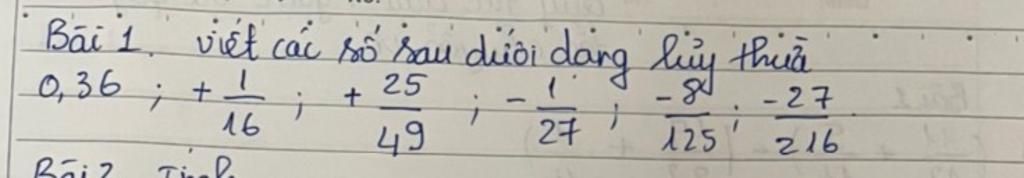 Bài 1. viết các số sau dưới dạng lũy thừa
0,36 ; + 1/16 ; + 25/49 ; - 1/27 ; -8/125 ; -27/216
Bài 2 Tính